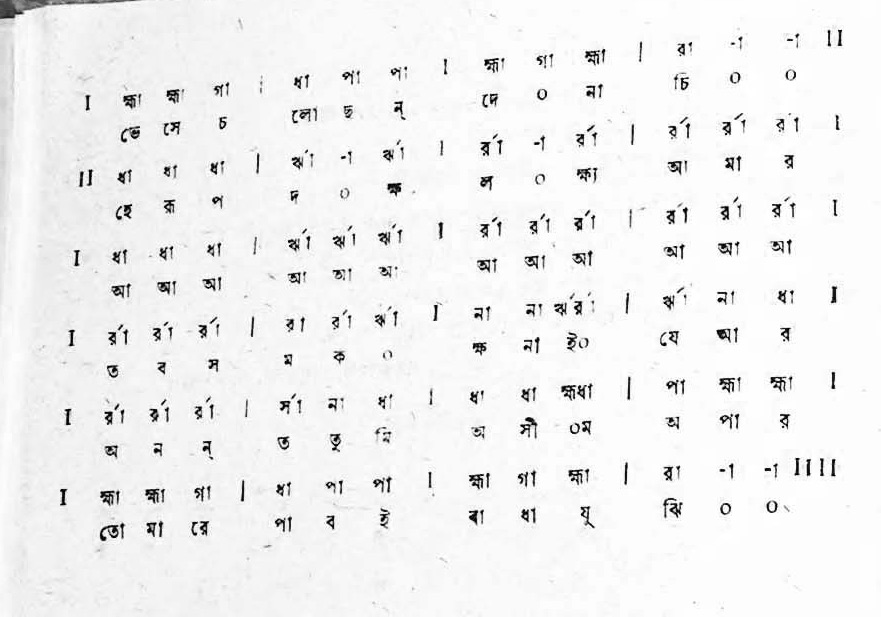 I হ্মা হ্মা গা | ধা পা পা I হ্মা গা হ্মা | রা -া -া II
ভে সে চ লো ছ ন্ দে ০ না চি ০ ০
II ধা ধা ধা | র্ঋা -া র্ঋা | র্রা -া র্রা | র্রা র্রা র্রা I
হে রূ প দ ০ ক্ষ ল ০ ক্ষ্য আ মা র
I ধা ধা ধা | র্ঋা র্ঋা র্ঋা I র্রা র্রা র্রা | র্রা র্রা র্রা I
আ আ আ আ আ আ আ আ আ আ আ আ
I র্রা র্রা র্রা | র্রা র্রা র্ঋা I না না র্ঋর্রা | র্ঋা না ধা I
ত ব স ম ক ০ ক্ষ না ই০ যে আ র
I র্রা র্রা র্রা | র্সা না ধা I ধা ধা হ্মধা | পা হ্মা হ্মা I
অ ন ন্ ত তু মি অ সী ০ম অ পা র
I হ্মা হ্মা গা | ধা পা পা I হ্মা গা হ্মা | রা -া -া IIII
তো মা রে পা ব ই ৰা ধা যু ঝি ০ ০